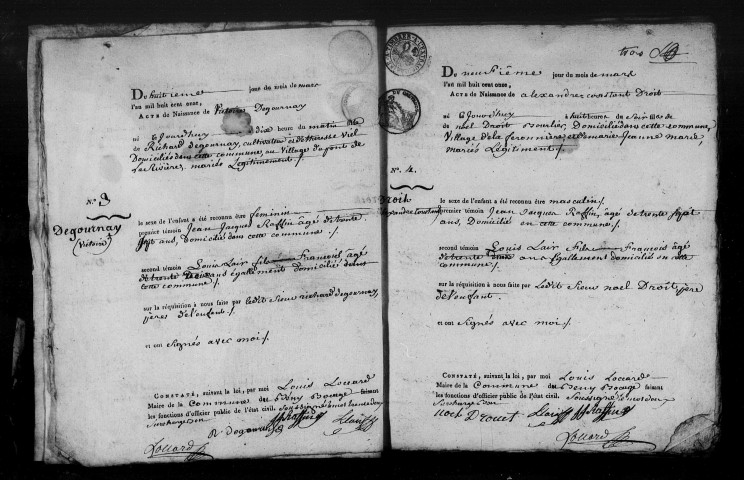 Du huitieme jour du mois de mars
l'an mil huit cent onze,
Acte de Naissance de Victoire Degournay
né Cejourd'huy à Dix heures du matin fille
de Richard degournay, cultivateur et de thérèse Viel
Domiciliés dans cette commune, au Village du pont de
la Riviere, mariés Legitimement /.
N.º 3
Degournay
(Victoire)
le sexe de l'enfant a été reconnu être feminin
premier témoin Jean Jacques Raffin âgé de trente
Sept ans, Domicilié dans cette commune /.
second témoin Louis Lair fils François âgé
de trente ans également domicilié dans
cette commune /.
sur la réquisition à nous faite par ledit Sieur richard degournay,
pere de l'enfant /.
et ont Signés avec moi /.
Constaté, suivant la loi, par moi Louis Louard
Maire de la Commune de Beny Bocage faisant
les fonctions d'officier public de l'état civil. Soussigné
R degournay JJ Raffin L Lair
Louard
trois
Du neuvième jour du mois de mars
l'an mil huit cent onze,
Acte de Naissance de alexandre constant Droit
né Cejourd'huy à huit heures du fils de
noel Droit Domicilié dans cette commune,
Village de la feronniere et de marie Jeanne marie,
mariés Légitiment /.
N.º 4.
Droit
alexandre constant
le sexe de l'enfant a été reconnu être masculin /.
premier témoin Jean Jacques Raffin, âgé de trente Sept
ans, Domicilié en cette commune /.
second témoin Louis Lair fils François âgé
de trente ans également domicilié en cette
commune /.
sur la réquisition à nous faite par Ledit Sieur noel Droit, pere
de l'enfant.
et ont Signés avec moi /.
Constaté, suivant la loi, par moi Louis Louard
Maire de la Commune de Beny Bocage faisant
les fonctions d'officier public de l'état civil. Soussigné
noel Drouet L Lair JJ Raffin
Louard